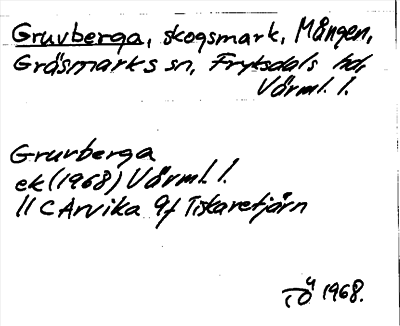 Gruvberga, skogsmark, Mången,
Gräsmarks sn, Fryksdals hd,
Värml. l.
Gruvberga
ek (1968) Värml. l.
11 C Arvika 9f Tiskaretjärn
1968.